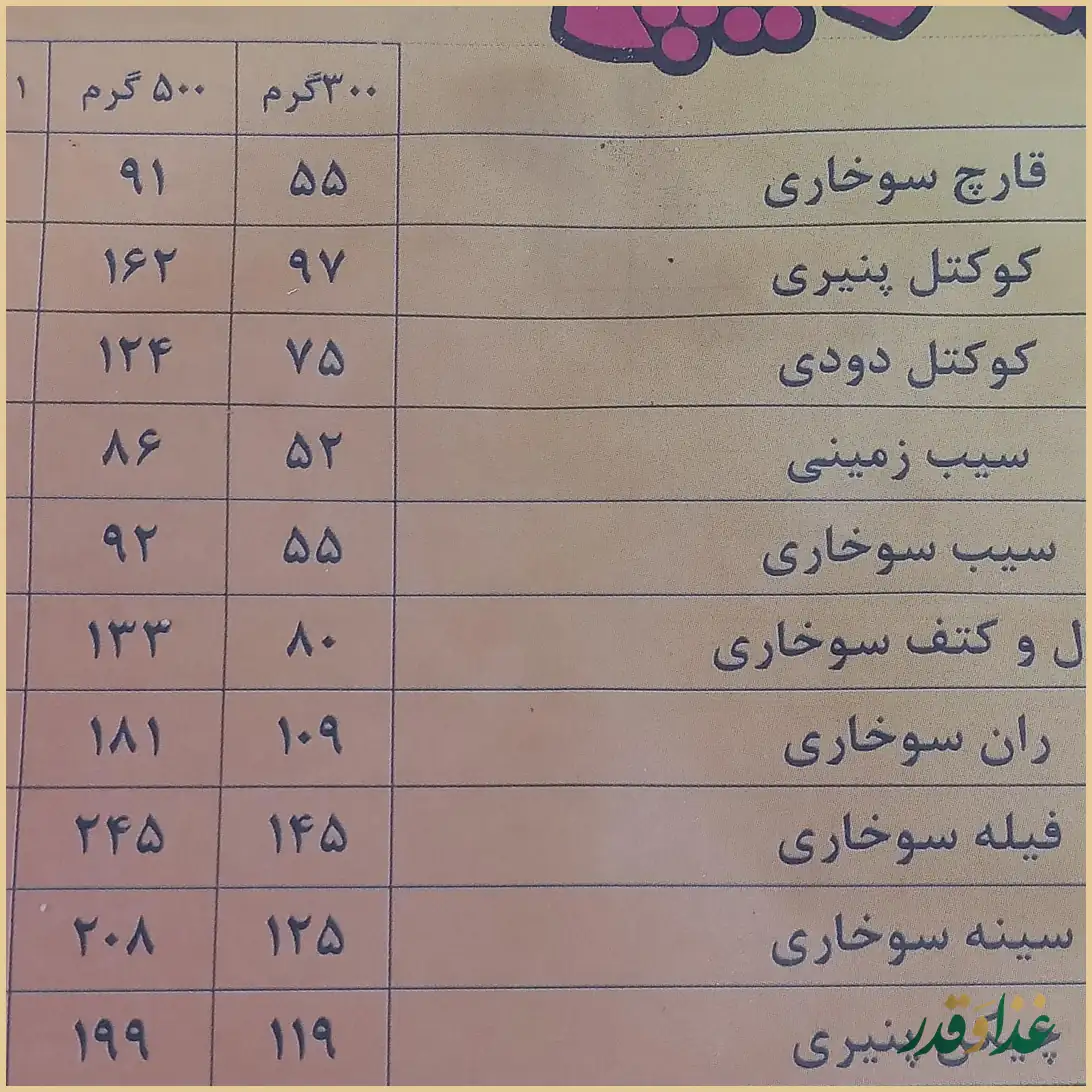 ۳۰۰گرم ۵۰۰ گرم ۱
قارچ سوخاری ۵۵ ۹۱
کوکتل پنیری ۹۷ ۱۶۲
کوکتل دودی ۷۵ ۱۲۴
سیب زمینی ۵۲ ۸۶
سیب سوخاری ۵۵ ۹۲
ل و کتف سوخاری ۸۰ ۱۳۳
ران سوخاری ۱۰۹ ۱۸۱
فیله سوخاری ۱۴۵ ۲۴۵
سینه سوخاری ۱۲۵ ۲۰۸
پنیری ۱۱۹ ۱۹۹
غذا و قدر